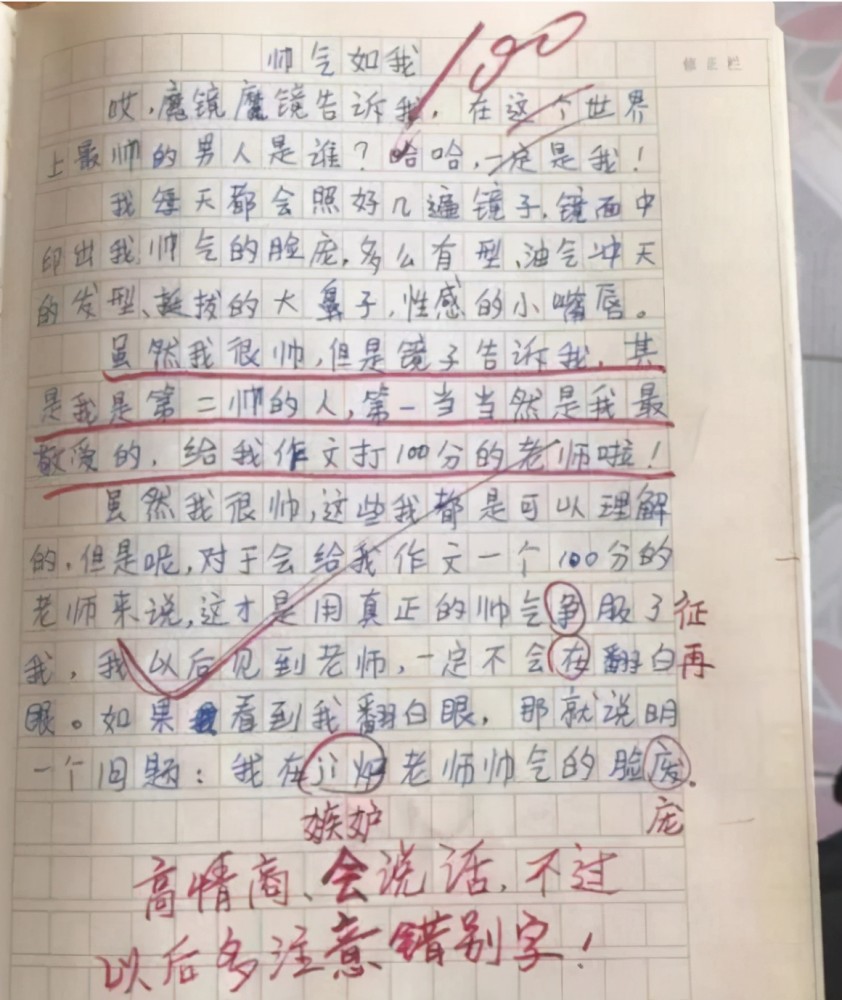 帅气如我
100
修正栏
哎,魔镜魔镜告诉我,在这个世界
上最帅的男人是谁?哈哈,一定是我!
我每天都会照好几遍镜子,镜面中
印出我帅气的脸庞,多么有型、油气冲天
的发型、挺拔的大鼻子,性感的小嘴唇。
虽然我很帅,但是镜子告诉我,其
是我是第二帅的人,第一当当然是我最
敬爱的,给我作文打100分的老师啦!
虽然我很帅,这些我都是可以理解
的,但是呢,对于会给我作文一个100分的
老师来说,这才是用真正的帅气争服了 征
我,我以后见到老师,一定不会在翻白 再
眼。如果我看到我翻白眼,那就说明
一个问题:我在ji妒老师帅气的脸废.
嫉妒 庞
高情商、会说话,不过
以后多注意错别字!